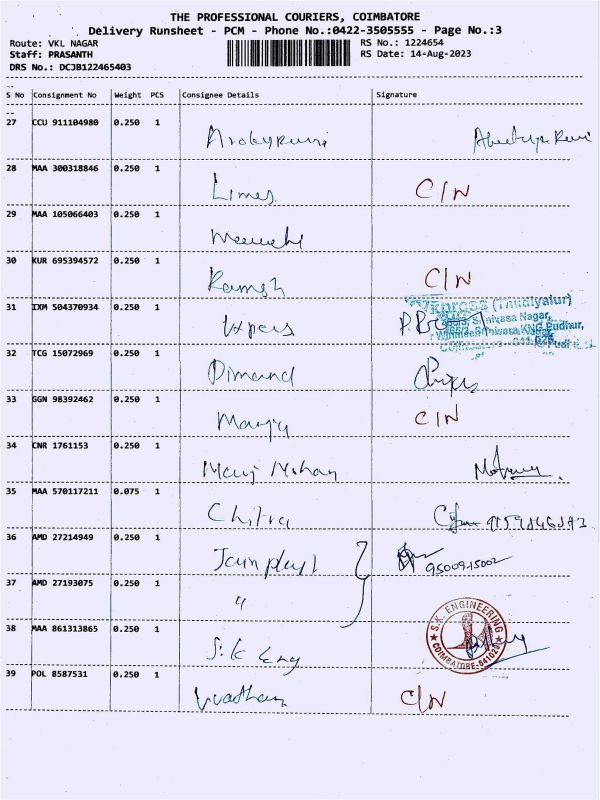 THE PROFESSIONAL COURIERS, COIMBATORE
Delivery Runsheet - PCM - Phone No.:0422-3505555 - Page No.:3
Route: VKL NAGAR RS No.: 1224654
Staff: PRASANTH RS Date: 14-Aug-2023
DRS No.: DCJB122465403
S No Consignment No Weight PCS Consignee Details Signature
27 CCU 911104980 0.250 1
28 MAA 300318846 0.250 1 Limes C/N
29 MAA 105066403 0.250 1
30 KUR 695394572 0.250 1 Ramesh C/N
31 IXM 504370934 0.250 1
Xpress (Thudiyalur)
32 TCG 15072969 0.250 1 Dimand
33 GGN 98392462 0.250 1 Manju C/N
34 CNR 1761153 0.250 1 Manj Mohan
35 MAA 570117211 0.075 1 Chitra
36 AMD 27214949 0.250 1 9500915002
37 AMD 27193075 0.250 1 "
38 MAA 861313865 0.250 1 S.K Eng
S.K. ENGINEERING
COIMBATORE-641029
39 POL 8587531 0.250 1 C/N